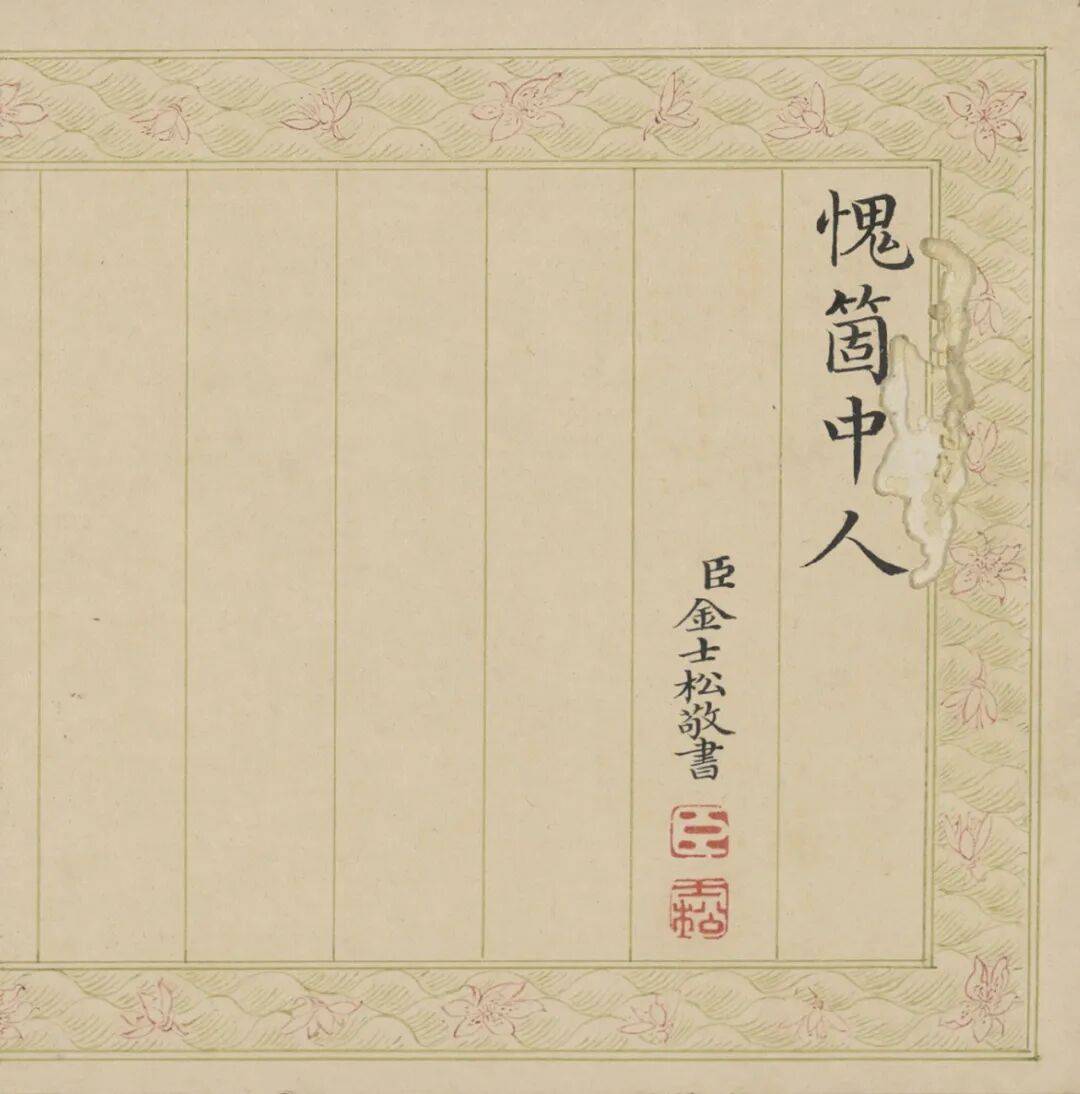 愧箇中人
臣金士松敬書
臣
士松